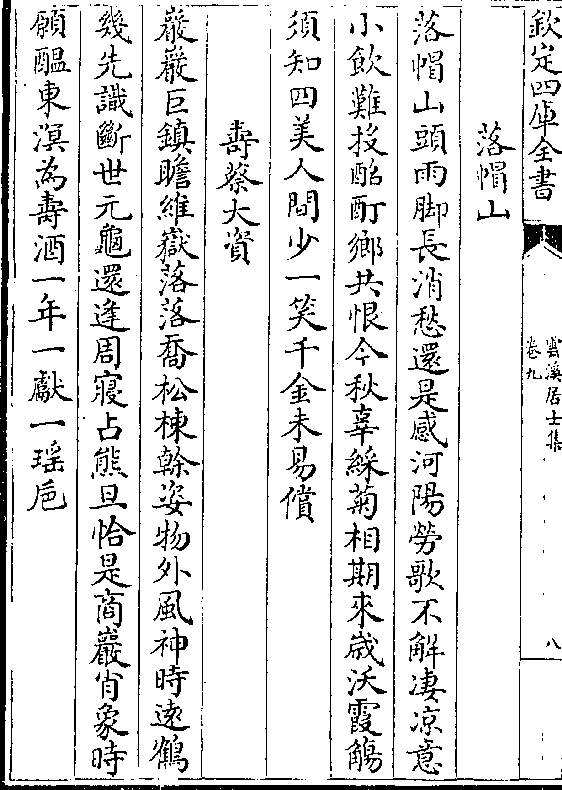 欽定四庫全書
雲溪居士集
卷九
八
落帽山
落帽山頭雨脚長消愁還是感河陽勞歌不解凄凉意
小飲難投酩酊鄉共恨今秋辜綵菊相期來嵗沃霞觴
須知四美人間少一笑千金未易償
壽蔡大資
巖巖巨鎮瞻維嶽落落喬松棟幹姿物外風神時遠鶴
幾先識斷世元龜還逢周寢占熊旦恰是商巖肖象時
願醖東溟為壽酒一年一獻一瑤巵